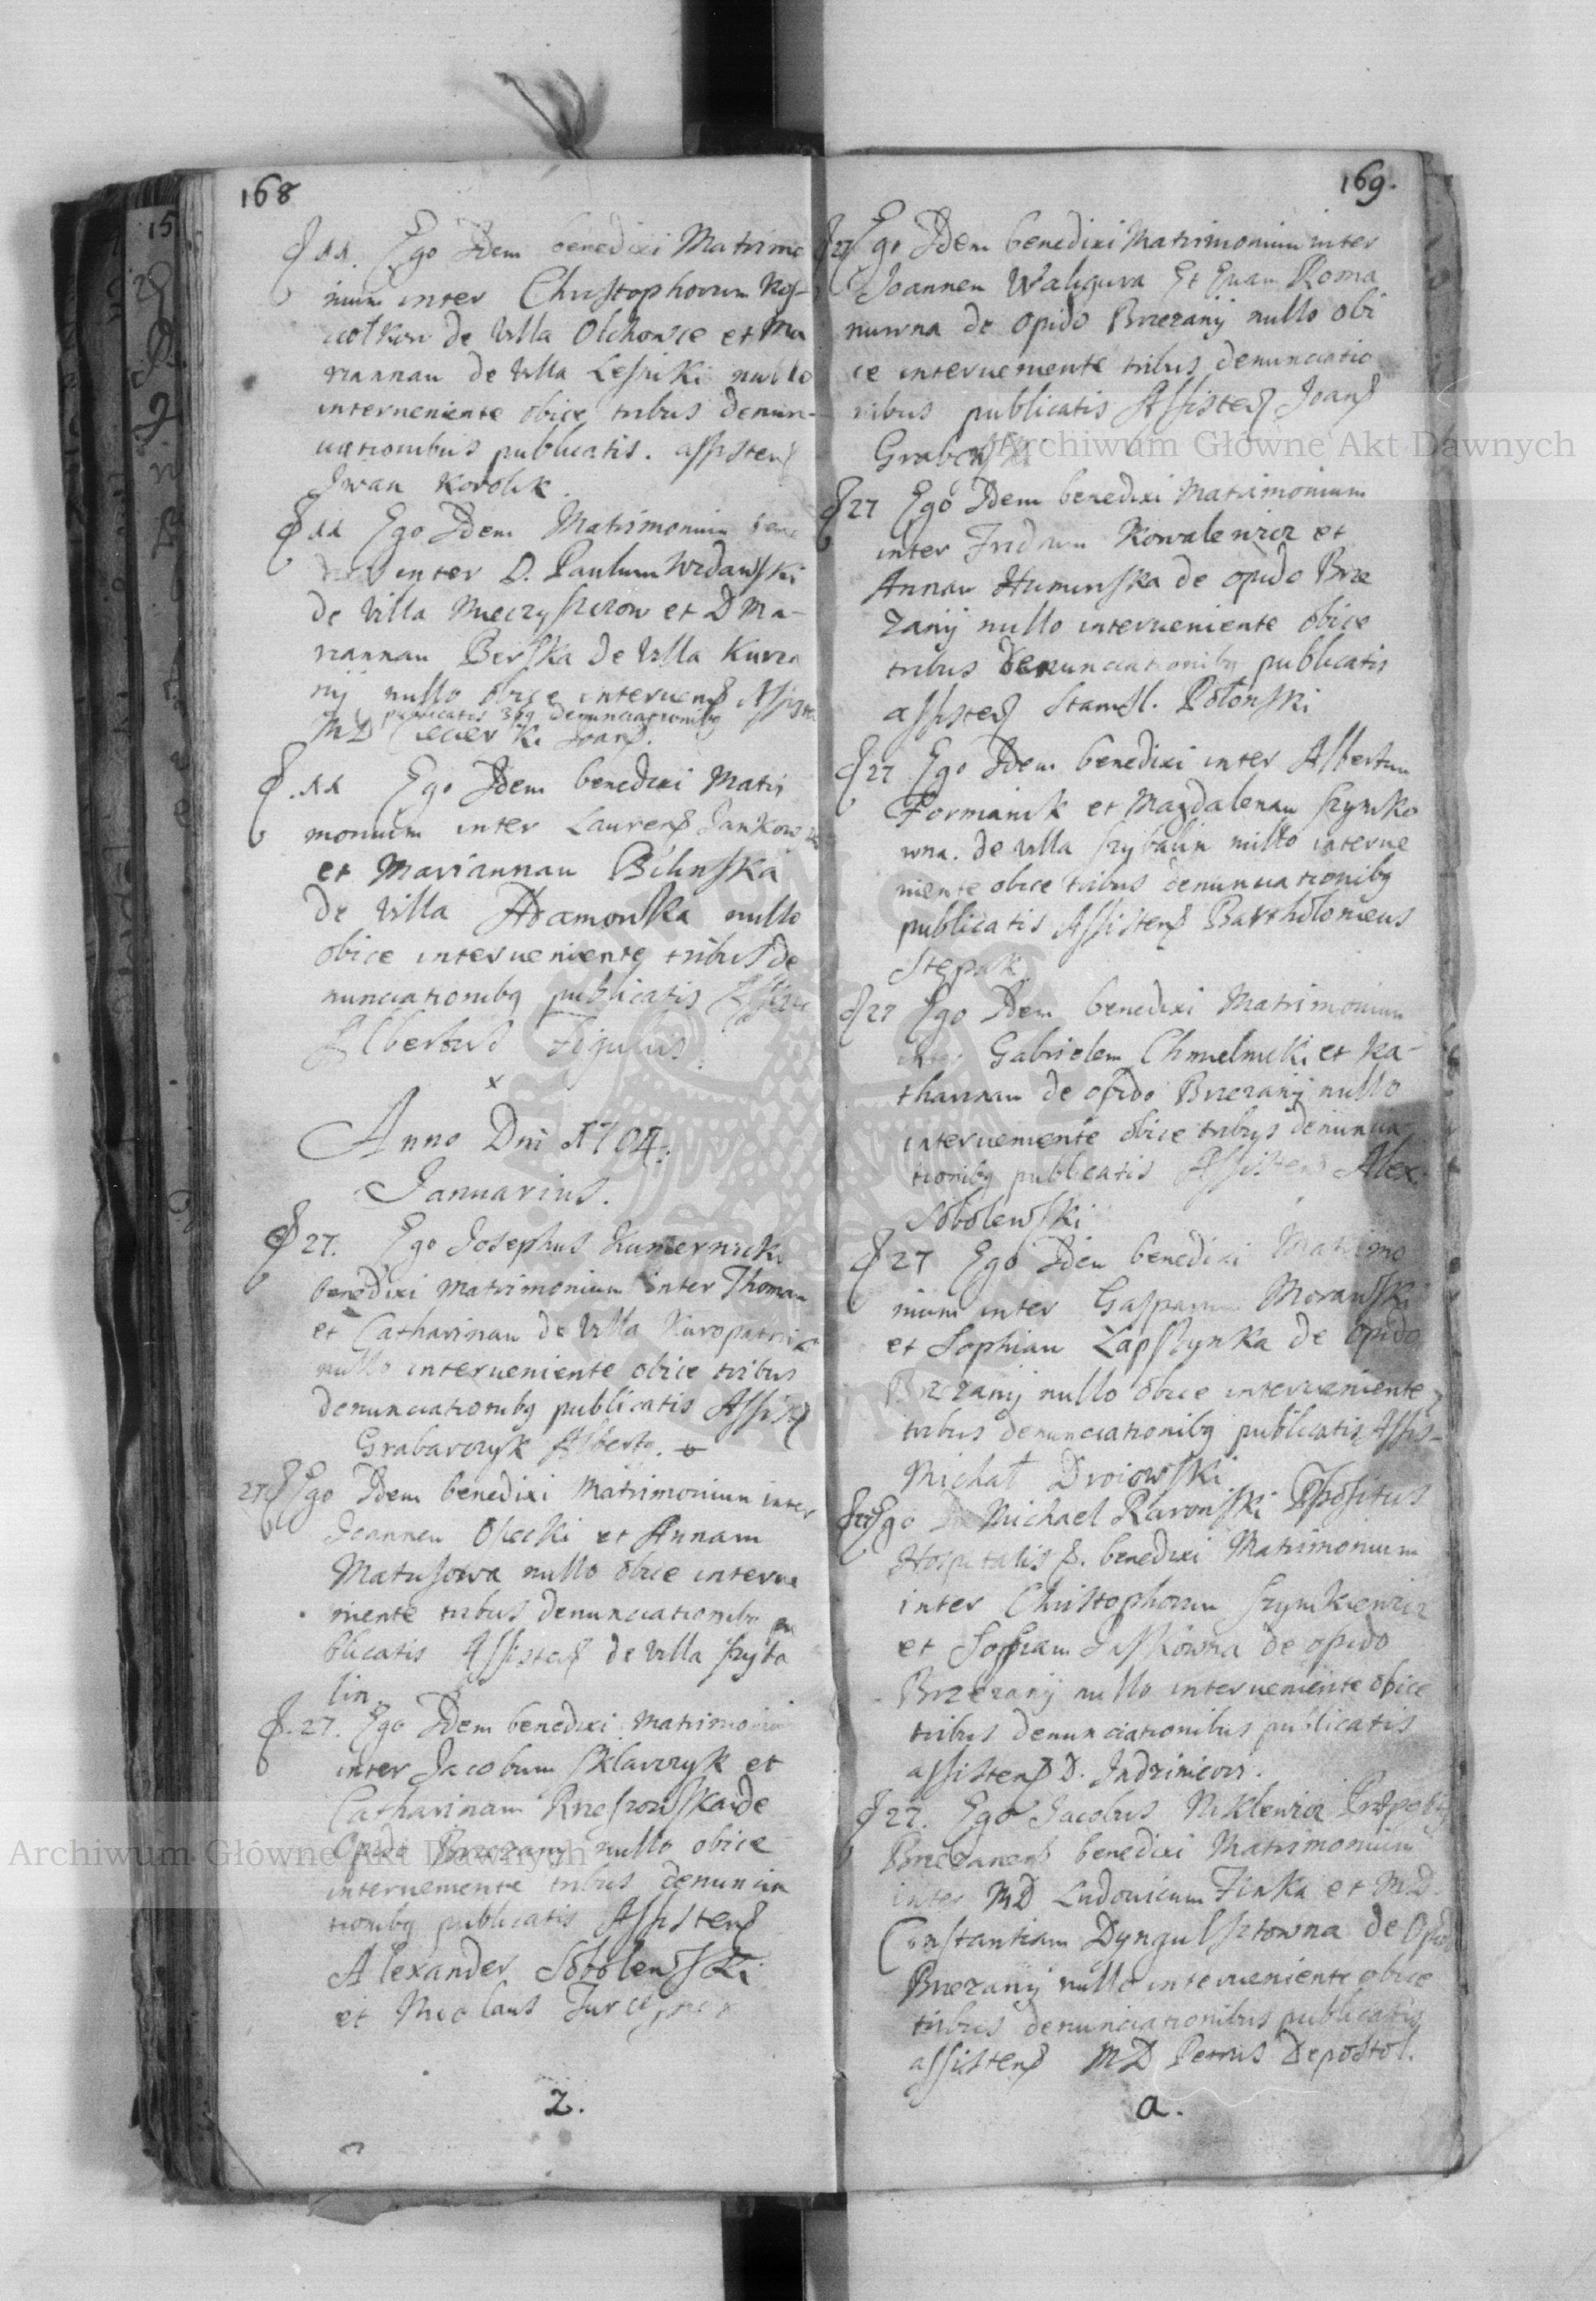 168
11. Ego Idem benedixi Matrimo
nium inter Christophorum
de Villa Olchowce et Ma
riannan de Villa Lesniki nullo
interueniente obice tribus denun-
ciationibus publicatis. assistens
Iwan Korolik.
11 Ego Idem Matrimonium bene
inter D. Paulum
de Villa Mieczysczow et D Ma-
riannan Berska de Villa Kurza
nij nullo obice interuens Assiste
publicatis 3bq denunciationibq
MD Joans.
11 Ego Idem benedixi Matri
monium inter Laurens Jankowski
et Mariannan Bilinska
de Villa Adamowka nullo
obice interueniente tribus de
nunciationibq publicatis
Albertus Figulus.
x
Anno Dni 1704.
Januarius.
27. Ego Josephus Kumernicki
benedixi Matrimonium inter Thoman
et Catharinan de Villa Kuropatnik
nullo interueniente obice tribus
denunciationibq publicatis Assis
Grabarczyk Albertq.
27 Ego Idem benedixi Matrimonium inter
Joannen et Annam
Matusowa nullo obice interue
niente tribus denunciationibq pu
blicatis Assistens de Villa Szyba
lin.
27. Ego Idem benedixi Matrimoniu
inter Jacobum Sklarczyk et
Catharinam Rzeszowska de
Opido Brzezany nullo obice
interueniente tribus denuncia
tionibq publicatis Assistens
Alexander Sobolewski
et Nicolaus
2.
169.
27 Ego Idem benedixi Matrimonium inter
Joannen Waligura Et Euam Roma
nuwna de Opido Brzezanij nullo obi
ce interueniente tribus denunciatio
nibus publicatis Assistens Joans
27 Ego Idem benedixi Matrimonium
inter Kowalewicz et
Annan Huminska de opido Brze
zanij nullo interueniente obice
tribus denunciationibq publicatis
assistens Stanisl. Polonski
27 Ego Idem benedixi inter Albertum
Formanik et Magdalenan Szymko
wna. de Villa Szybalin nullo interue
niente obice tribus denunciationibq
publicatis Assistens Bartholomeus
Stępak
27 Ego Idem benedixi Matrimonium
inter Gabrielem Chmielnicki et Ka-
tharinan de opido Brzezanij nullo
interueniente obice tribus denuncia
tionibq publicatis Assistens Alex.
Sobolewski
27 Ego Idem benedixi Matrimo
nium inter Gasparum Morawski
et Sophian Łapszynka de opido
Brzezanij nullo obice interueniente
tribus denunciationibq publicatis Assis-
Michał Droiowski
27 Ego Michael Rawonski Ppositus
Hospitalis S. benedixi Matrimonium
inter Christophorum Szymkiewicz
et Sophiam de opido
Brzezanij nullo interueniente obice
tribus denunciationibus publicatis
assistens D.
27. Ego Jacobus Niklewicz
Brzezanens benedixi Matrimonium
inter MD Ludouicum Finka et MD.
Constantiam Dyngulsztowna de Opido
Brzezanij nullo interueniente obice
tribus denunciationibus publicatis
assistens MD Petrus Depostol.
a.
Archiwum Główne Akt Dawnych
Archiwum Główne Akt Dawnych